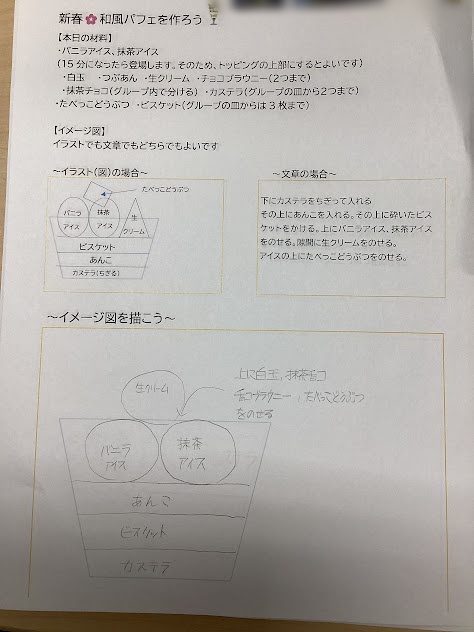 新春🌸和風パフェを作ろう
【本日の材料】
・バニラアイス、抹茶アイス
(15分になったら登場します。そのため、トッピングの上部にするとよいです)
・白玉 ・つぶあん ・生クリーム ・チョコブラウニー(2つまで)
・抹茶チョコ(グループ内で分ける) ・カステラ(グループの皿から2つまで)
・たべっこどうぶつ ・ビスケット(グループの皿からは3枚まで)
【イメージ図】
イラストでも文章でもどちらでもよいです
~イラスト(図)の場合~
たべっこどうぶつ
バニラ
アイス
抹茶
アイス
生
クリーム
ビスケット
あんこ
カステラ(ちぎる)
~文章の場合~
下にカステラをちぎって入れる
その上にあんこを入れる。その上に砕いたビス
ケットをかける。上にバニラアイス、抹茶アイス
をのせる。隙間に生クリームをのせる。
アイスの上にたべっこどうぶつをのせる。
~イメージ図を描こう~
生クリーム
上に白玉、抹茶チョコ
チョコブラウニー、たべっこどうぶつ
をのせる
バニラ
アイス
抹茶
アイス
あんこ
ビスケット
カステラ